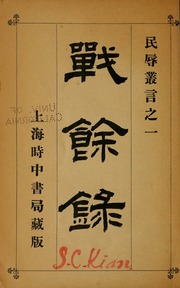 民辱叢言之一
戰餘錄
上海時中書局藏版
UNIV. OF
CALIFORNIA
S.C.Kian